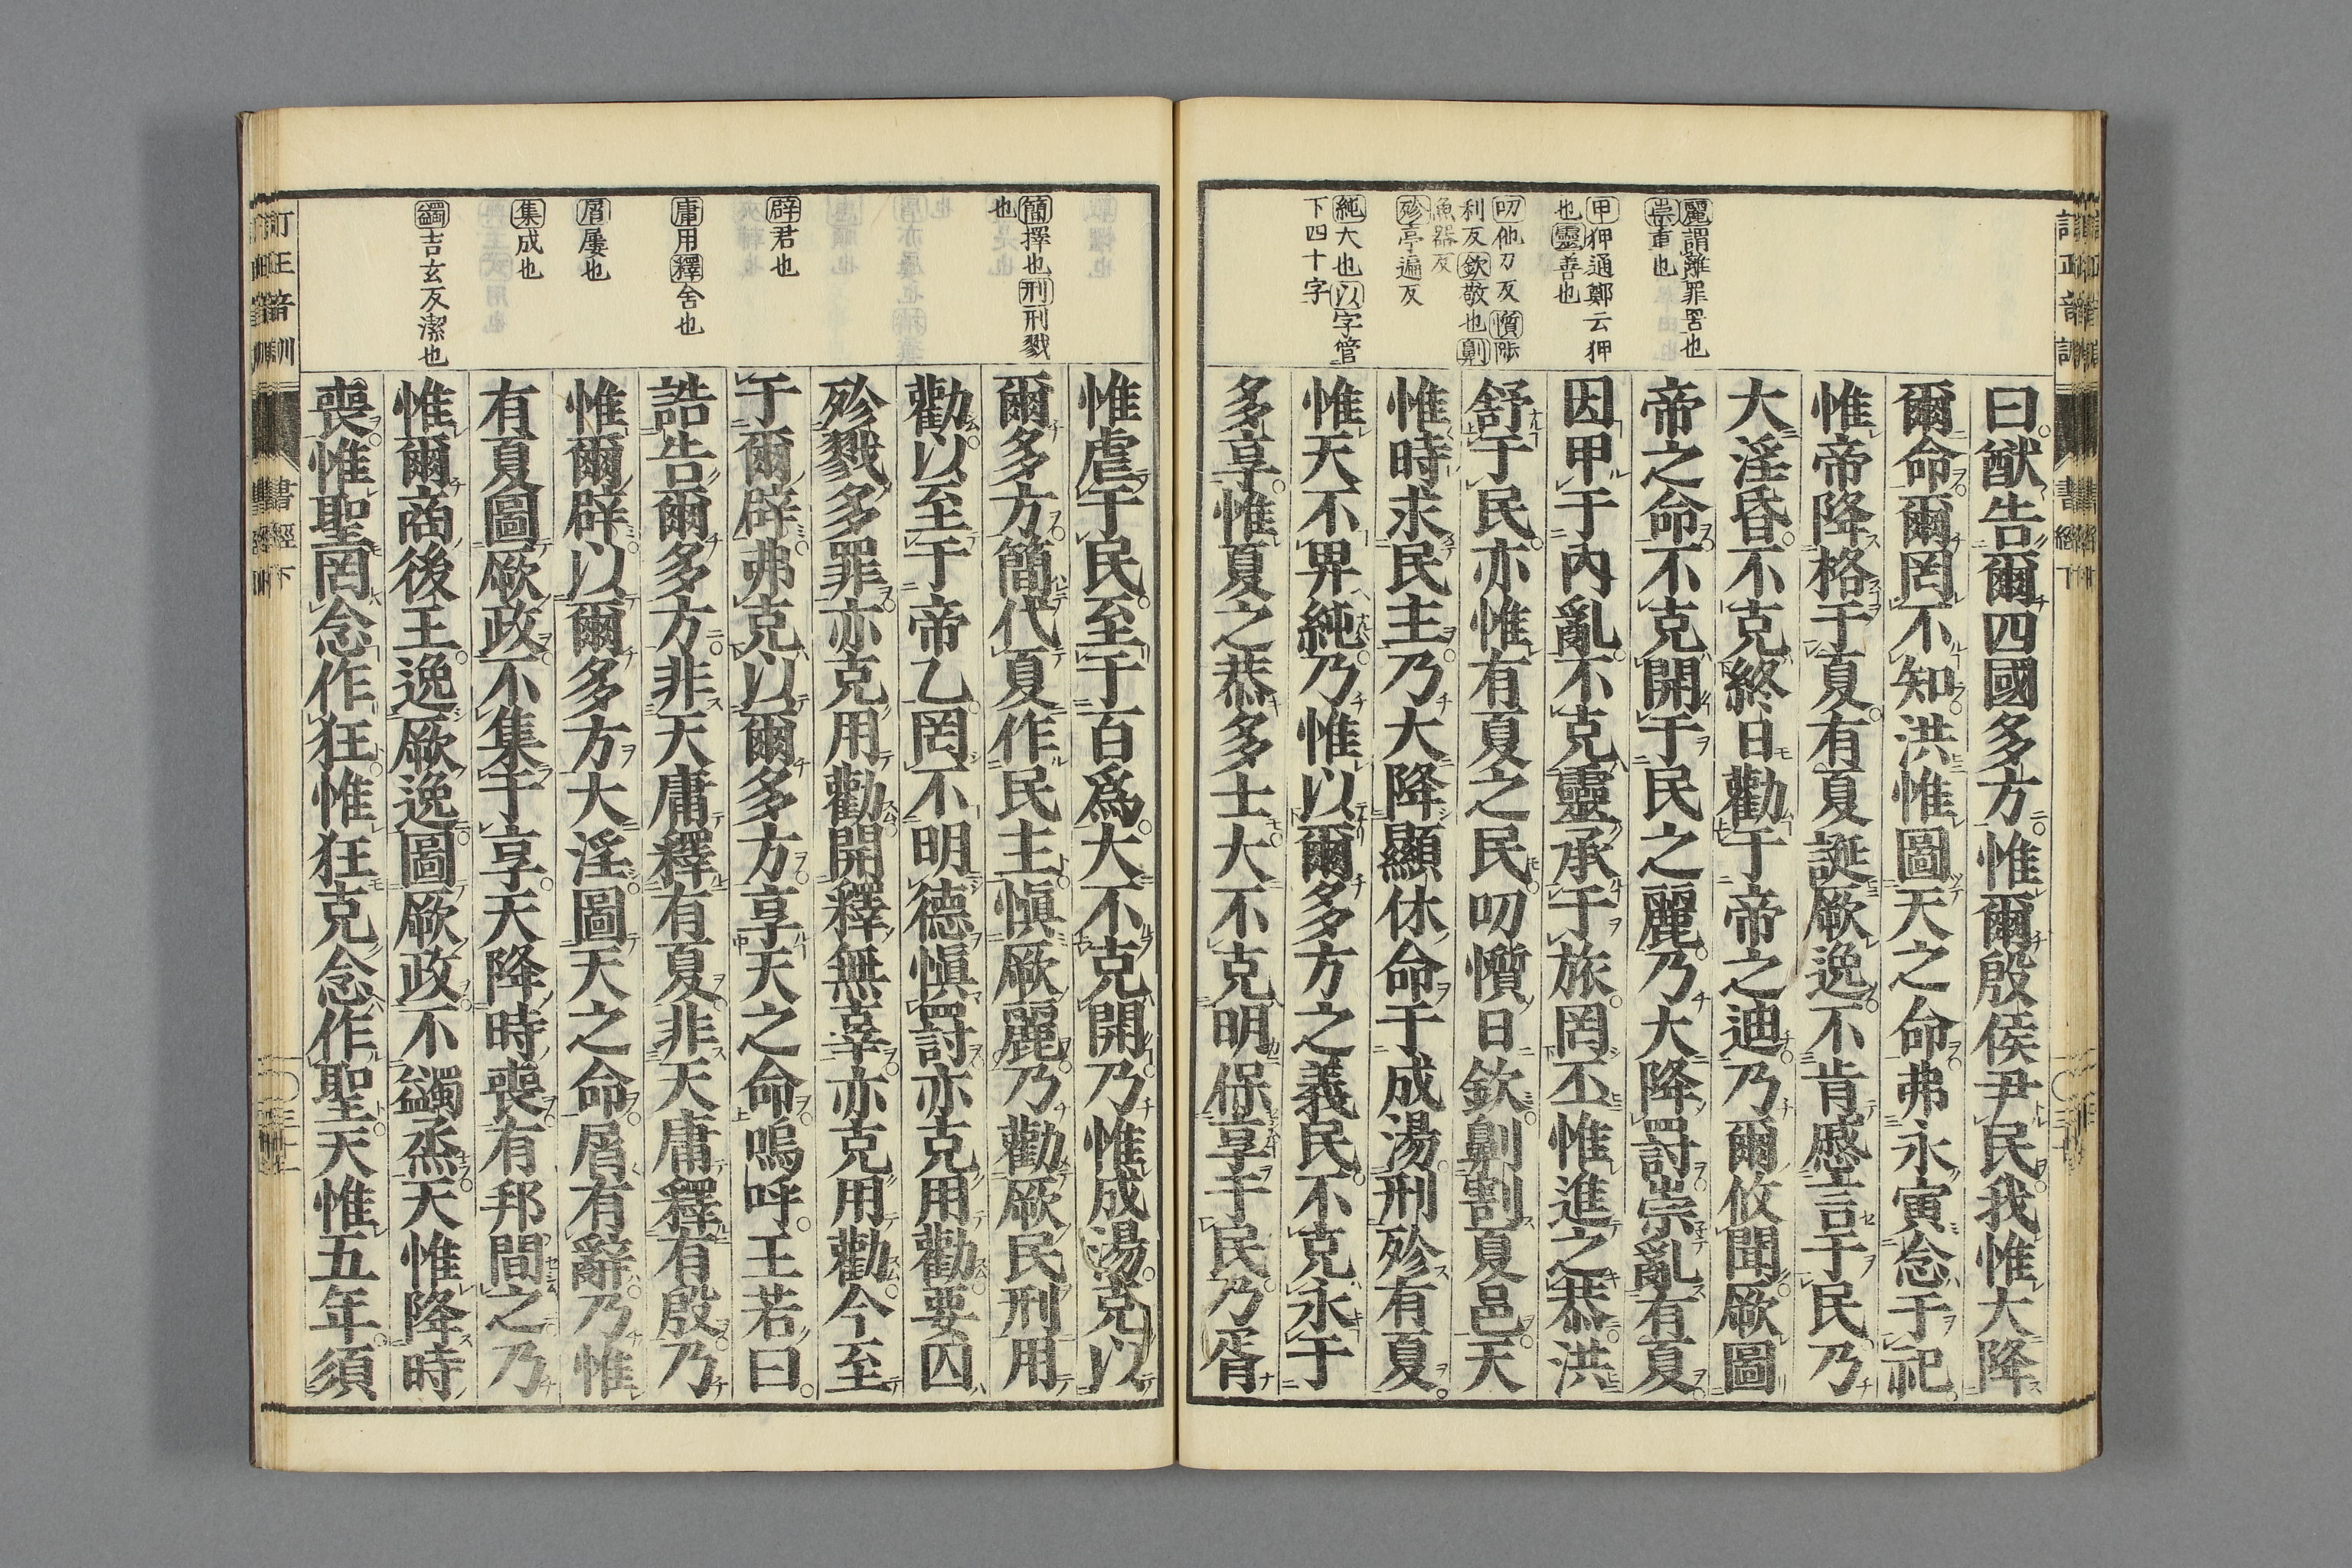 麗謂離罪罟也
崇重也
甲狎通鄭云狎
也靈善也
叨他刀反懫陟
利反欽敬也劓
魚器反
殄亭遍反
純大也以字管
下四十字
曰猷告爾四國多方惟爾殷侯尹民我惟大降
爾命爾罔不知洪惟圖天之命弗永寅念于祀
惟帝降格于夏有夏誕厥逸不肯慼言于民乃
大淫昏不克終日勸于帝之迪乃爾攸聞厥圖
帝之命不克開于民之麗乃大降罰崇亂有夏
因甲于內亂不克靈承于旅罔丕惟進之恭洪
舒于民亦惟有夏之民叨懫日欽劓割夏邑天
惟時求民主乃大降顯休命于成湯刑殄有夏
惟天不畀純乃惟以爾多方之義民不克永于
多享惟夏之恭多士大不克明保享于民乃胥
簡擇也刑刑戮
也
辟君也
庸用釋舍也
屑屢也
集成也
蠲吉玄反潔也
惟虐于民至于百爲大不克開乃惟成湯克以
爾多方簡代夏作民主愼厥麗乃勸厥民刑用
勸以至于帝乙罔不明德愼罰亦克用勸要囚
殄戮多罪亦克用勸開釋無辜亦克用勸今至
于爾辟弗克以爾多方享天之命嗚呼王若曰
誥告爾多方非天庸釋有夏非天庸釋有殷乃
惟爾辟以爾多方大淫圖天之命屑有辭乃惟
有夏圖厥政不集于享天降時喪有邦間之乃
惟爾商後王逸厥逸圖厥政不蠲烝天惟降時
喪惟聖罔念作狂惟狂克念作聖天惟五年須
訂正音訓
書經下